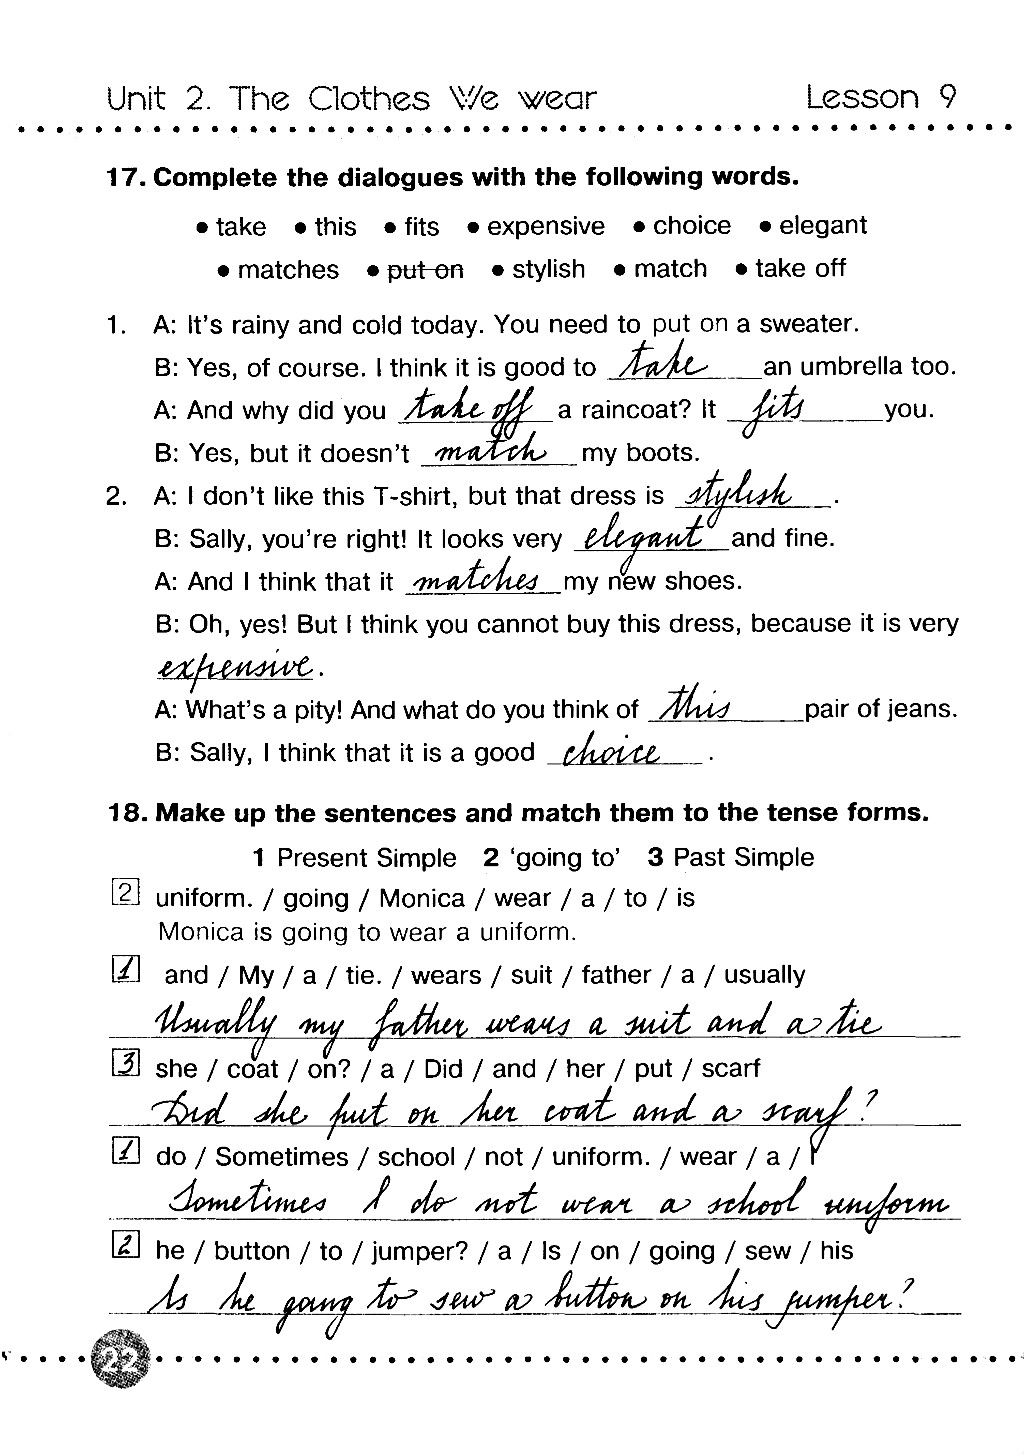 Unit 2. The Clothes We wear Lesson 9
17. Complete the dialogues with the following words.
• take • this • fits • expensive • choice • elegant
• matches • put on • stylish • match • take off
1. A: It's rainy and cold today. You need to put on a sweater.
B: Yes, of course. I think it is good to take an umbrella too.
A: And why did you take off a raincoat? It fits you.
B: Yes, but it doesn't match my boots.
2. A: I don't like this T-shirt, but that dress is stylish.
B: Sally, you're right! It looks very elegant and fine.
A: And I think that it matches my new shoes.
B: Oh, yes! But I think you cannot buy this dress, because it is very
expensive.
A: What's a pity! And what do you think of this pair of jeans.
B: Sally, I think that it is a good choice.
18. Make up the sentences and match them to the tense forms.
1 Present Simple 2 'going to' 3 Past Simple
2 uniform. / going / Monica / wear / a / to / is
Monica is going to wear a uniform.
1 and / My / a / tie. / wears / suit / father / a / usually
Usually my father wears a suit and a tie
3 she / coat / on? / a / Did / and / her / put / scarf
Did she put on her coat and a scarf?
1 do / Sometimes / school / not / uniform. / wear / a / I
Sometimes I do not wear a school uniform
2 he / button / to / jumper? / a / Is / on / going / sew / his
Is he going to sew a button on his jumper?
22